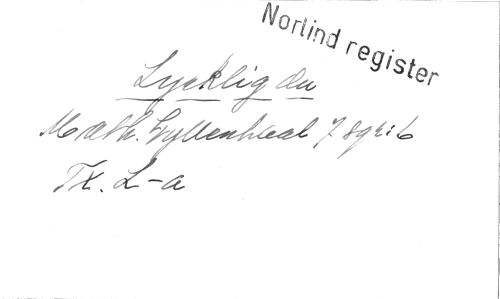 Norlind register
Lycklig du
Math. Gyllenhaal 7 sgr:6
Tx. L-a